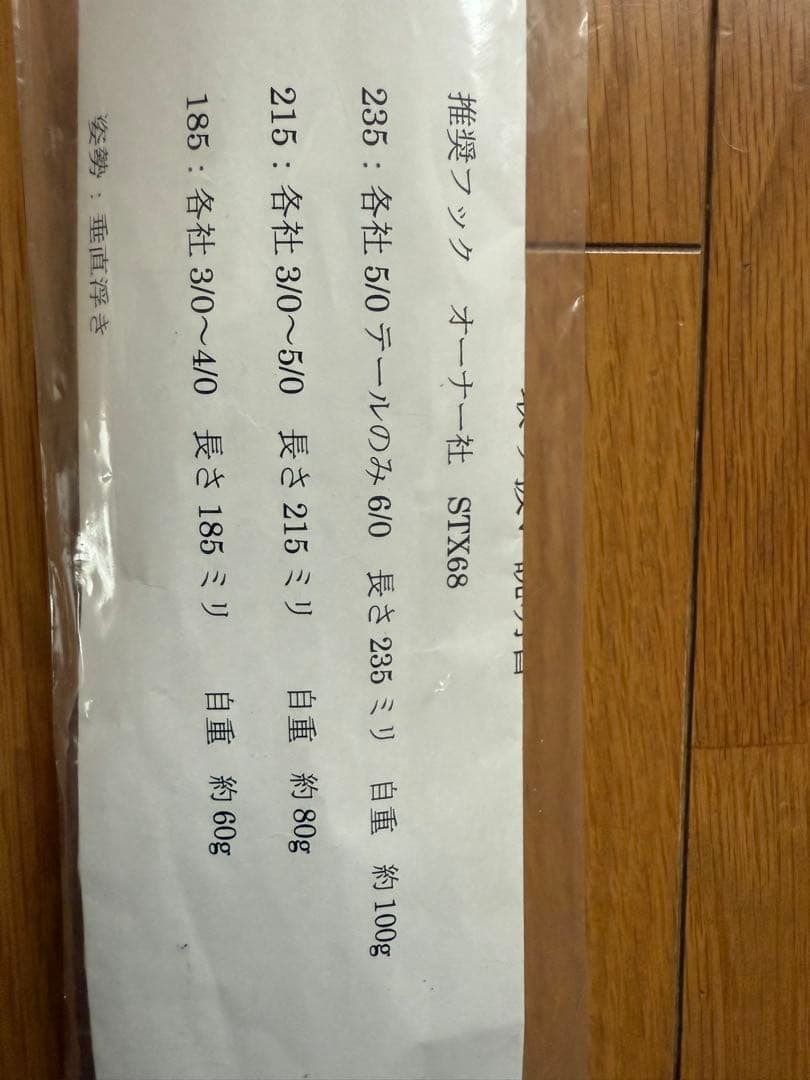 推奨フック　オーナー社　STX68
235：各社 5/0 テールのみ 6/0　長さ 235 ミリ　自重　約 100g
215：各社 3/0～5/0　長さ 215 ミリ　　自重　約 80g
185：各社 3/0～4/0　長さ 185 ミリ　　自重　約 60g
姿勢：垂直浮き